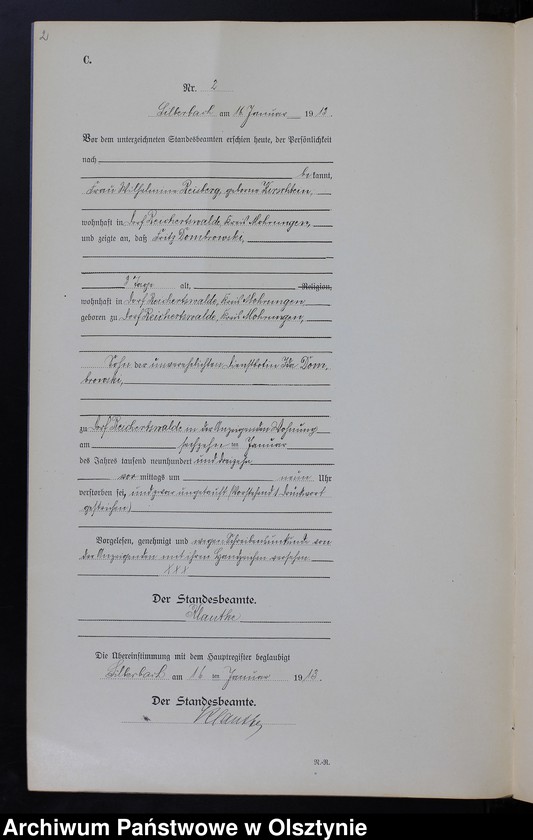 2
C.
Nr. 2
Silberbach am 16 Januar 1913.
Vor dem unterzeichneten Standesbeamten erschien heute, der Persönlichkeit
nach
be kannt,
Frau Wilhelmine Reuberg, geborene Kirschstein,
wohnhaft in Dorf Reichertswalde, Kreis Mohrungen,
und zeigte an, daß Fritz Dombrowski,
2 Tage alt, Religion,
wohnhaft in Dorf Reichertswalde, Kreis Mohrungen
geboren zu Dorf Reichertswalde, Kreis Mohrungen,
Sohn der unverehelichten Dienstbotin Ida Dom-
browski,
zu Dorf Reichertswalde in der Anzeigenden Wohnung
am sechzehn ten Januar
des Jahres tausend neunhundert und dreizehn
vor mittags um neun Uhr
verstorben sei, und zwar ungetauft (Vorstehend 1 Druckwort
gestrichen)
Vorgelesen, genehmigt und wegen Schreibensunkunde von
der Anzeigenden mit ihrem Handzeichen versehen
XXX
Der Standesbeamte.
Klauthe
Die Übereinstimmung mit dem Hauptregister beglaubigt
Silberbach am 16 ten Januar 1913.
Der Standesbeamte.
Klauthe
R.-R.
Archiwum Państwowe w Olsztynie